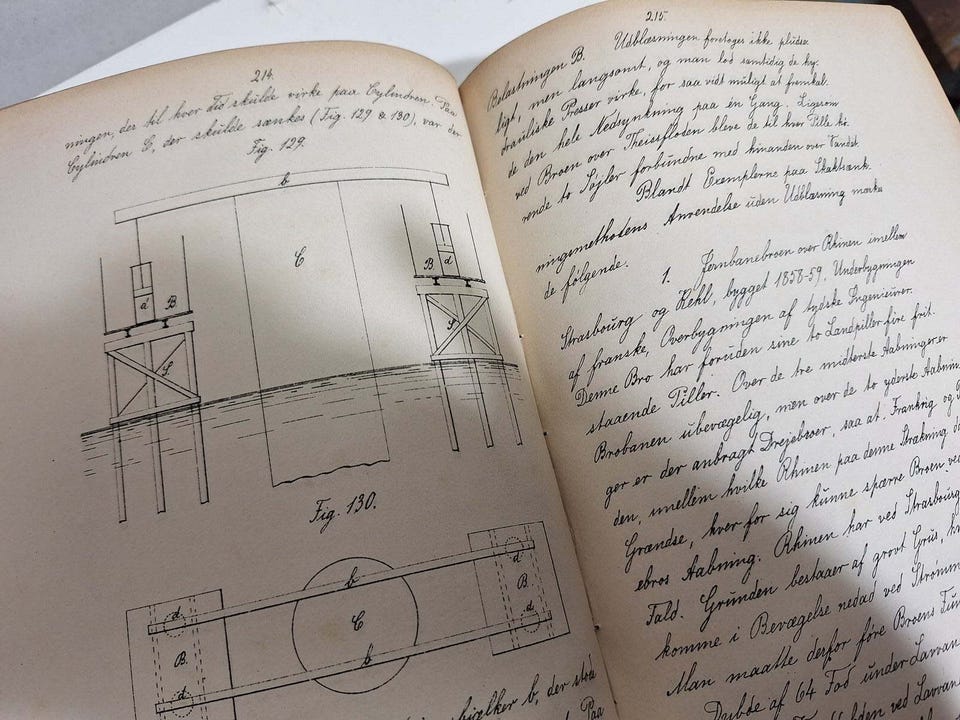 214.
ningen, der til hver Tid skulde virke paa Cylindren. Paa
Cylindren C, der skulde sænkes (Fig. 129 & 130), var der
Fig. 129.
b
C
B
d
d
B
S
S
Fig. 130.
b
d
d
B
C
B
d
b
d
bjælker b, der stod
Paa
215.
Belastningen B. Udblæsningen foretoges ikke pludse
ligt, men langsomt, og man lod samtidig de hy-
drauliske Presser virke, for saa vidt muligt at fremkal-
de den hele Nedsynkning paa én Gang. Ligesom
ved Broen over Theissfloden bleve de til hver Pille hö-
rende to Søjler forbundne med hinanden over Vandet.
Blandt Exemplerne paa Skaktsænk-
ningsmethodens Anvendelse uden Udblæsning mærkes
de følgende.
1. Jernbanebroen over Rhinen imellem
Strasbourg og Kehl, bygget 1858-59. Underbygningen
af franske, Overbygningen af tydske Ingenieurer.
Denne Bro har foruden sine to Landpiller fire frit-
staaende Piller. Over de tre midterste Aabninger er
Brobanen ubevægelig, men over de to yderste Aabnin-
ger er der anbragt Drejebroer, saa at Frankrig og
den, imellem hvilke Rhinen paa denne Strækning
Grændse, hver for sig kunne spærre Broen ved
ebros Aabning. Rhinen har ved Strasbourg
Fald. Grunden bestaaer af grovt Grus,
komme i Bevægelse nedad ved Strømm
Man maatte derfor føre Broens Fun
Dybde af 64 Fod under Lavvan
ved Lavvan